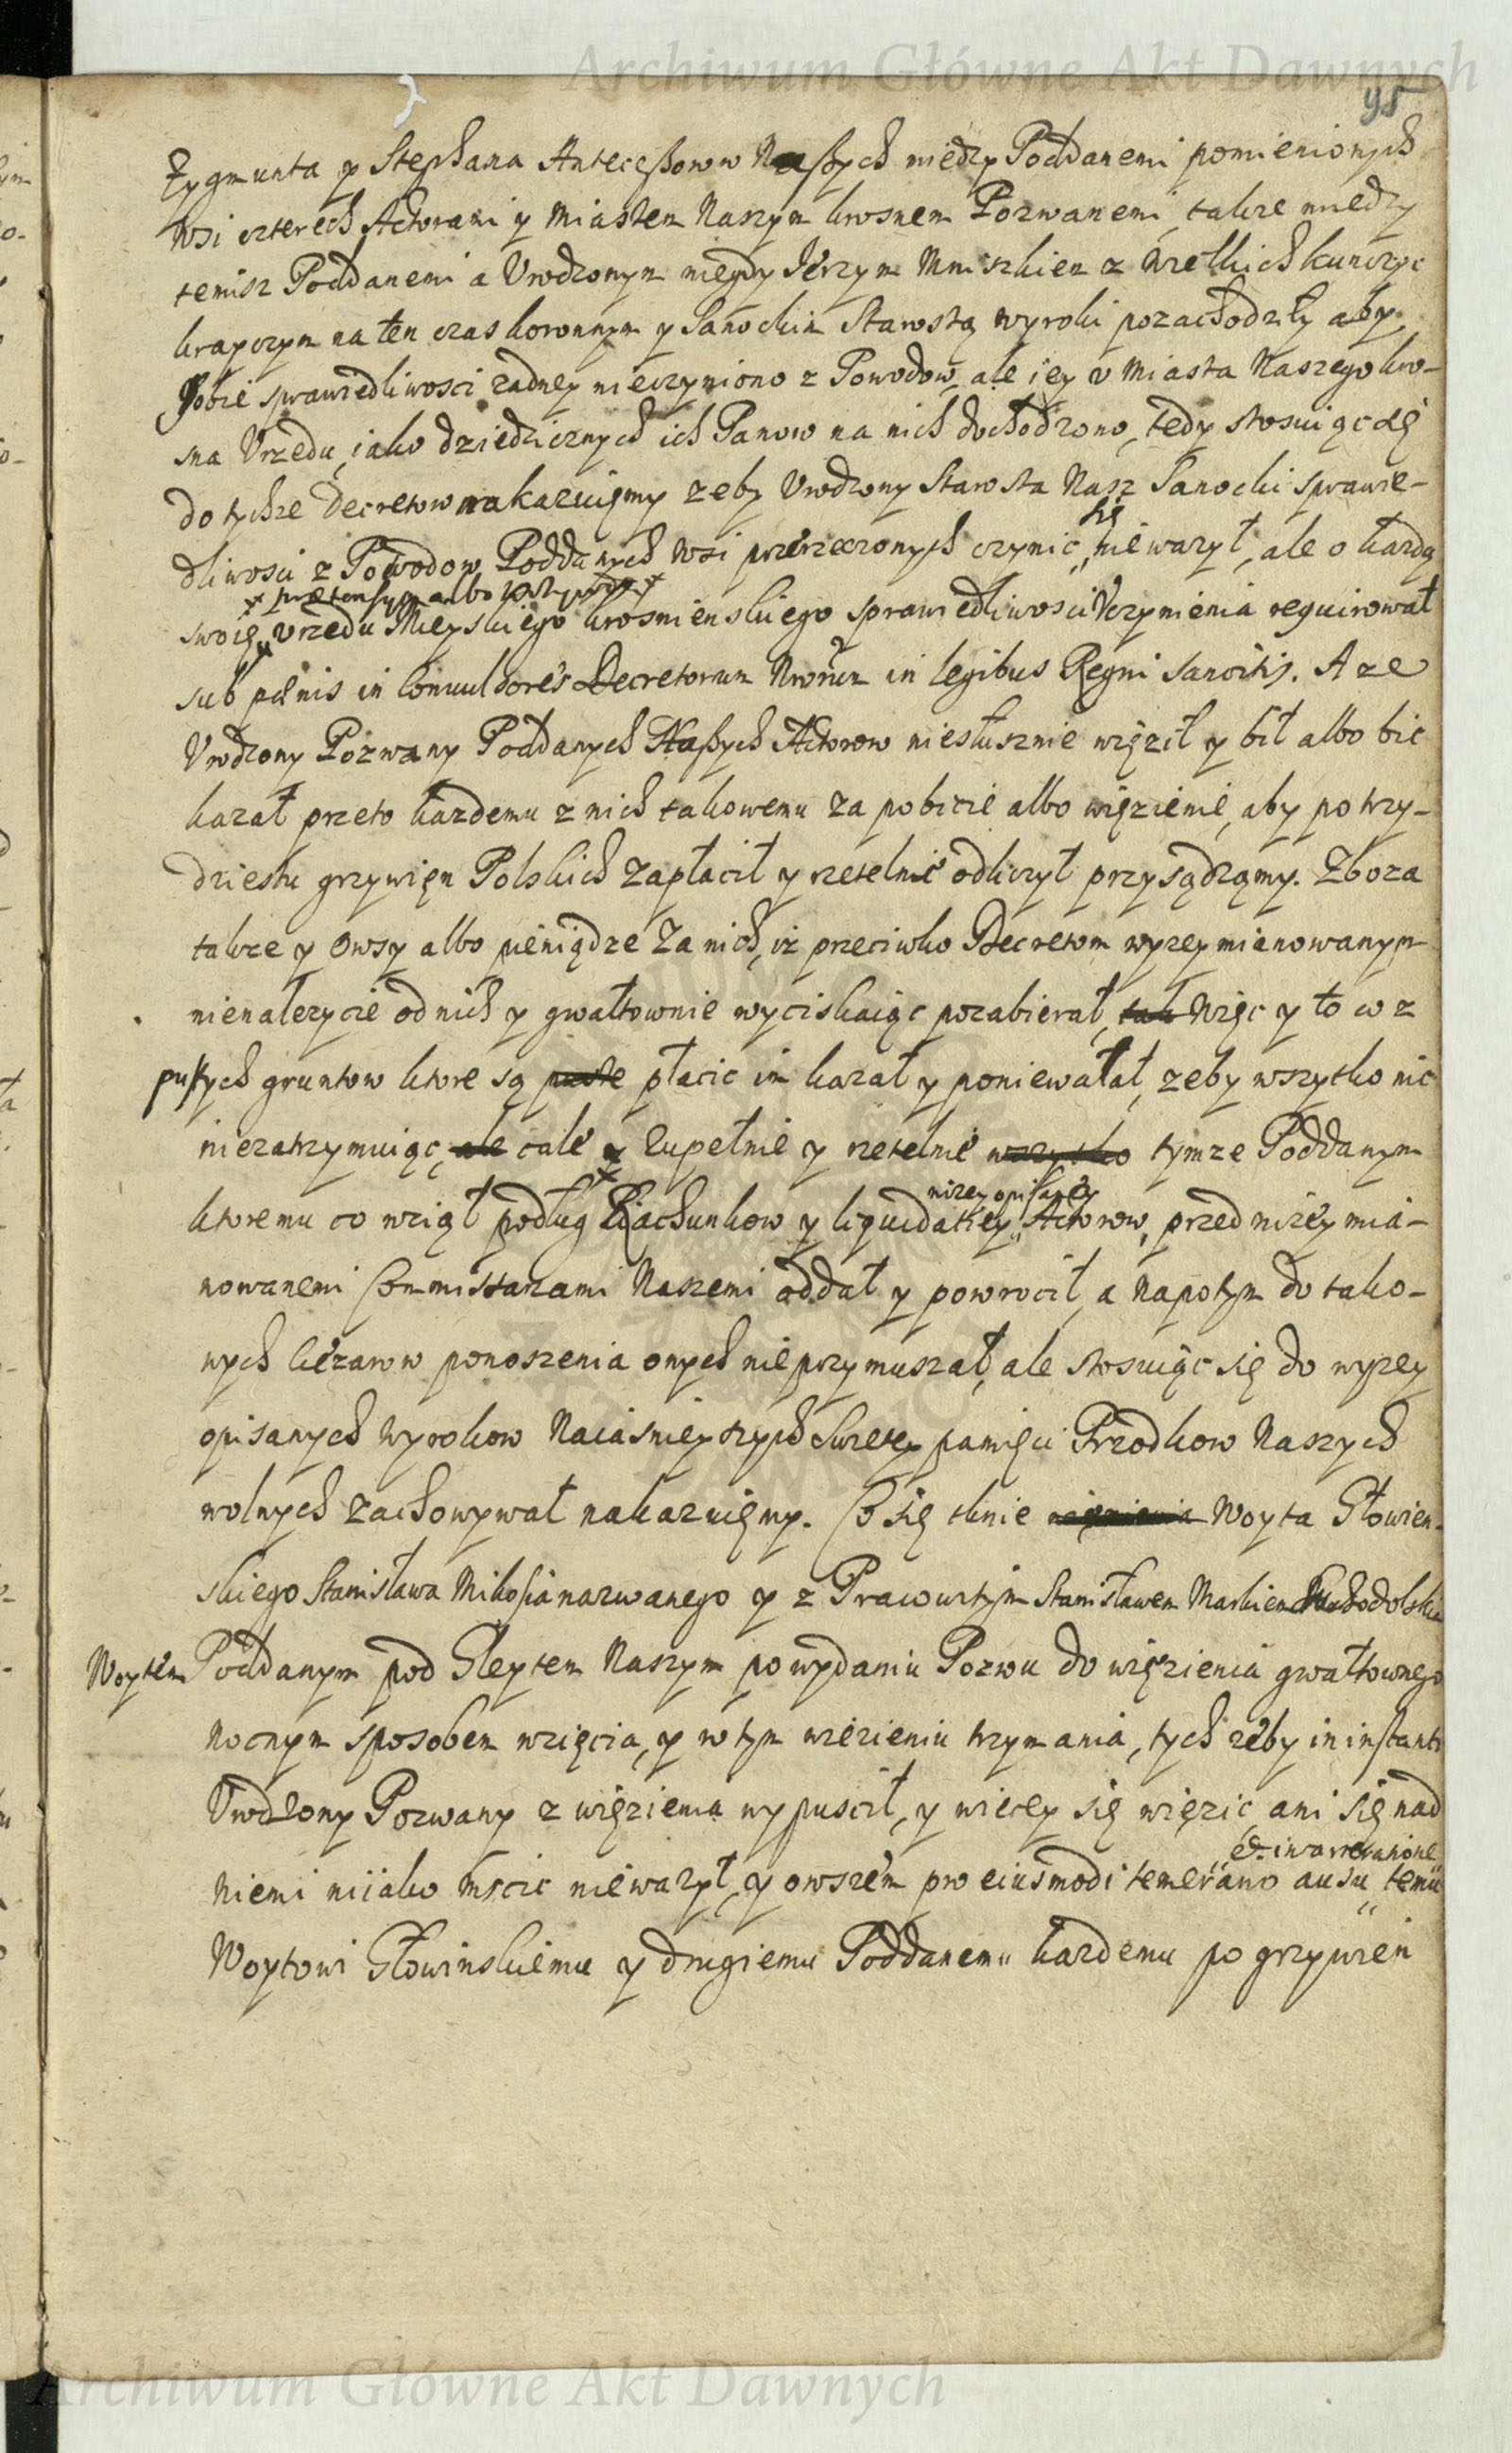 Archiwum Główne Akt Dawnych
95
Zygmunta y Stephana Antecessorow Naszych miedzy Poddanemi pomienionych
wsi czterech Actorami y Miastem Naszym krosnem Pozwanemi, takze miedzy
temisz Poddanemi a Vrodzonym niegdy Jerzym Mniszkiem z Wielkich kunczyc
krayczym na ten czas koronnym y Sanockim Starostą wyroki pozachodziły aby
sobie sprawiedliwosci zadney nieczyniono z Powodow, ale iey v Miasta Naszego kro-
sna Vrzedu, iako dziedzicznych ich Panow na nich dochodzono, tedy stosuiąc się
do tychze Decretow nakazuięmy zeby Vrodzony Starosta Nasz Sanocki sprawie-
się
dliwosci z Powodow Poddanych wsi przerzeczonych czynic, niewazył, ale o kazdą
x prætensyą albo krzywdę x
swoię Vrzedu Mieyskiego krosnienskiego sprawiedliwosci Vczynienia requirował
sub pænis in Convulsores Decretorum Nrorum in legibus Regni sancitis. A ze
Vrodzony Pozwany Poddanych Naszych Actorow niesłusznie więził y bił albo bic
kazał przeto kazdemu z nich takowemu za pobicie albo więzienie, aby po trzy-
dziestu grzywięn Polskich zapłacił y rzetelnie odliczył przysądzamy. Zboza
takze y owsy albo pieniądze za nich, iz przeciwko Decretom wyzey mianowanym
nienalezycie od nich y gwałtownie wyciskaiąc pozabierał, tak Więc y to co z
pustych gruntow ktore są puste płacic im kazał y poniewalał, zeby wszytko nic
niezatrzymuiąc, ale cale y zupełnie y rzetelnie wszytko tymze Poddanym
nizey opisaney
ktoremu co wziął podług Rachunkow y liquidatiey Actorow, przed nizey mia-
nowanemi Commissarzami Naszemi oddał y powrocił, a napotym do tako-
wych Cięzarow ponoszenia onych nieprzymuszał, ale stosuiąc się do wyzey
opisanych wyrokow Naiasnieyszych Swietey pamięci Przodkow Naszych
wolnych zachowywał nakazuięmy. Co się tknie Woyta Głowien-
skiego Stanisława Mikosia nazwanego y z Stanisławem Markiem
Woytem Poddanym pod Gleytem Naszym po wydaniu Pozwu do więzienia gwałtownego
nocnym sposobem wzięcia, y w tym wiezieniu trzymania, tych zeby in instanti
Vrodzony Pozwany z więzienia wypuscił, y wiecey się więzic, ani się nad
et inattentione
niemi niiako mscic niewazył, y owszem pro eiusmodi temerario ausu temu
Woytowi Głowinskiemu y drugiemu Poddanemu kazdemu po grzywien
Archiwum Główne Akt Dawnych